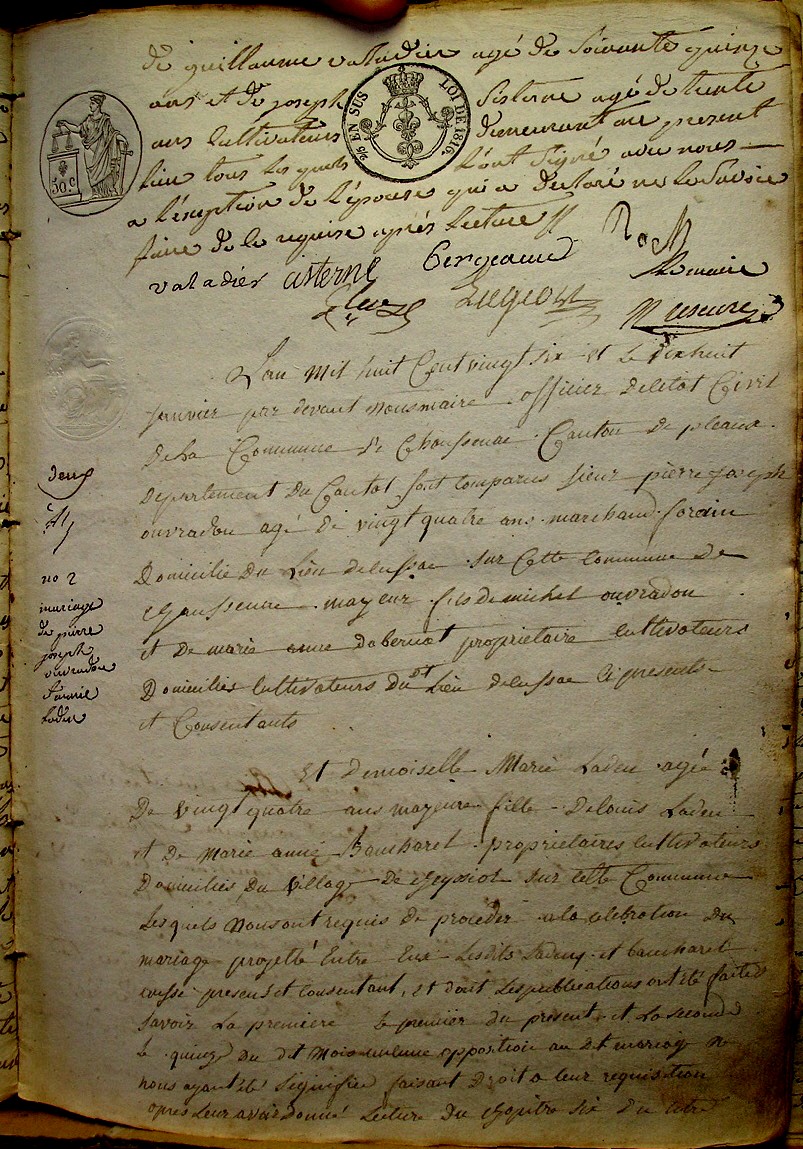 de guillaume valadier agé de soixante quinze
ans et de joseph Sisterne agé de trente
ans Cultivateurs demeurant au present
lieu tous les quels L'ont signé avec nous
a l'éxeption de L'épouse qui a declaré ne le Savoir
faire de le requise aprés Lecture
valadier cisterne Bergeaud
Le maire
30 c
25 EN SUS
LOI DE 1816.
L'an mil huit Cent vingt six et le dix huit
janvier par devant nous maire officier de letat Civil
de La Commune de Chaussenac Canton de pleaux
departement du Cantal sont comparus sieur pierre joseph
ouvradou agé de vingt quatre ans marchand forain
Domicilié du Lieu de lussac sur Cette Commune de
mayeur fils de michel ouvradou
et de marie anne propriétaire Cultivateurs
Domiciliés Cultivateurs du dt Lieu de lussac Ci presents
et Consentants
deux
no 2
mariage
de pierre
joseph
ouvradou
Et demoiselle Marie Laden agée
De vingt quatre ans mayeure fille De louis Laden
et De Marie anne proprietaires Cultivateurs
Domiciliés du village De sur cette Commune
Lesquels Nous ont requis de procéder a la celebration du
mariage projetté Entre Eux Les dits et
aussi present et consentant, et dont Les publications ont été faites
Savoir La premiere le premier du present et La seconde
le quinze du dit mois aucune opposition au dt mariage ne
nous ayant été signifiée faisant Droit a leur requisition
apres Leur avoir Donné Lecture du chapitre six du titre